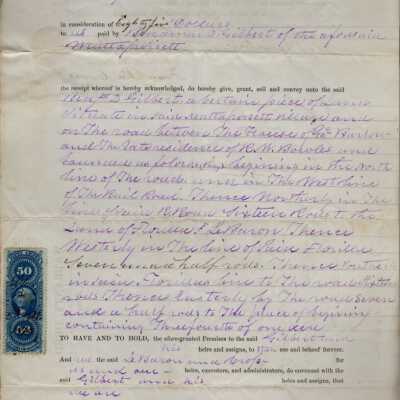 in consideration of Eighty five Dollars
to us paid by D Gilbert of the aforesaid
Mattapoisett
the receipt whereof is hereby acknowledged, do hereby give, grant, sell and convey unto the said
D Gilbert, a certain piece of Land
Situate in said Mattapoisett Village and
on The road between The House of Barlow
and The late residence of R. W. Bowles and
bounded as follows, beginning in the North
line of The road and in The West line
of The Rail Road. Thence Northerly in The
line of said R. Road Sixteen Rods to the
Land of LeBaron. Thence
Westerly in The line of said
Seven and a half rods. Thence
in said line to The road
rods. Thence Easterly by The road Seven
and a half rods to The place of beginning
containing Three fourths of one acre
TO HAVE AND TO HOLD, the aforegranted Premises to the said Gilbert and
his heirs and assigns, to their use and behoof forever.
And we the said LeBaron and for
us and our heirs, executors, and administrators, do covenant with the
said Gilbert and his heirs and assigns, that
we are
50